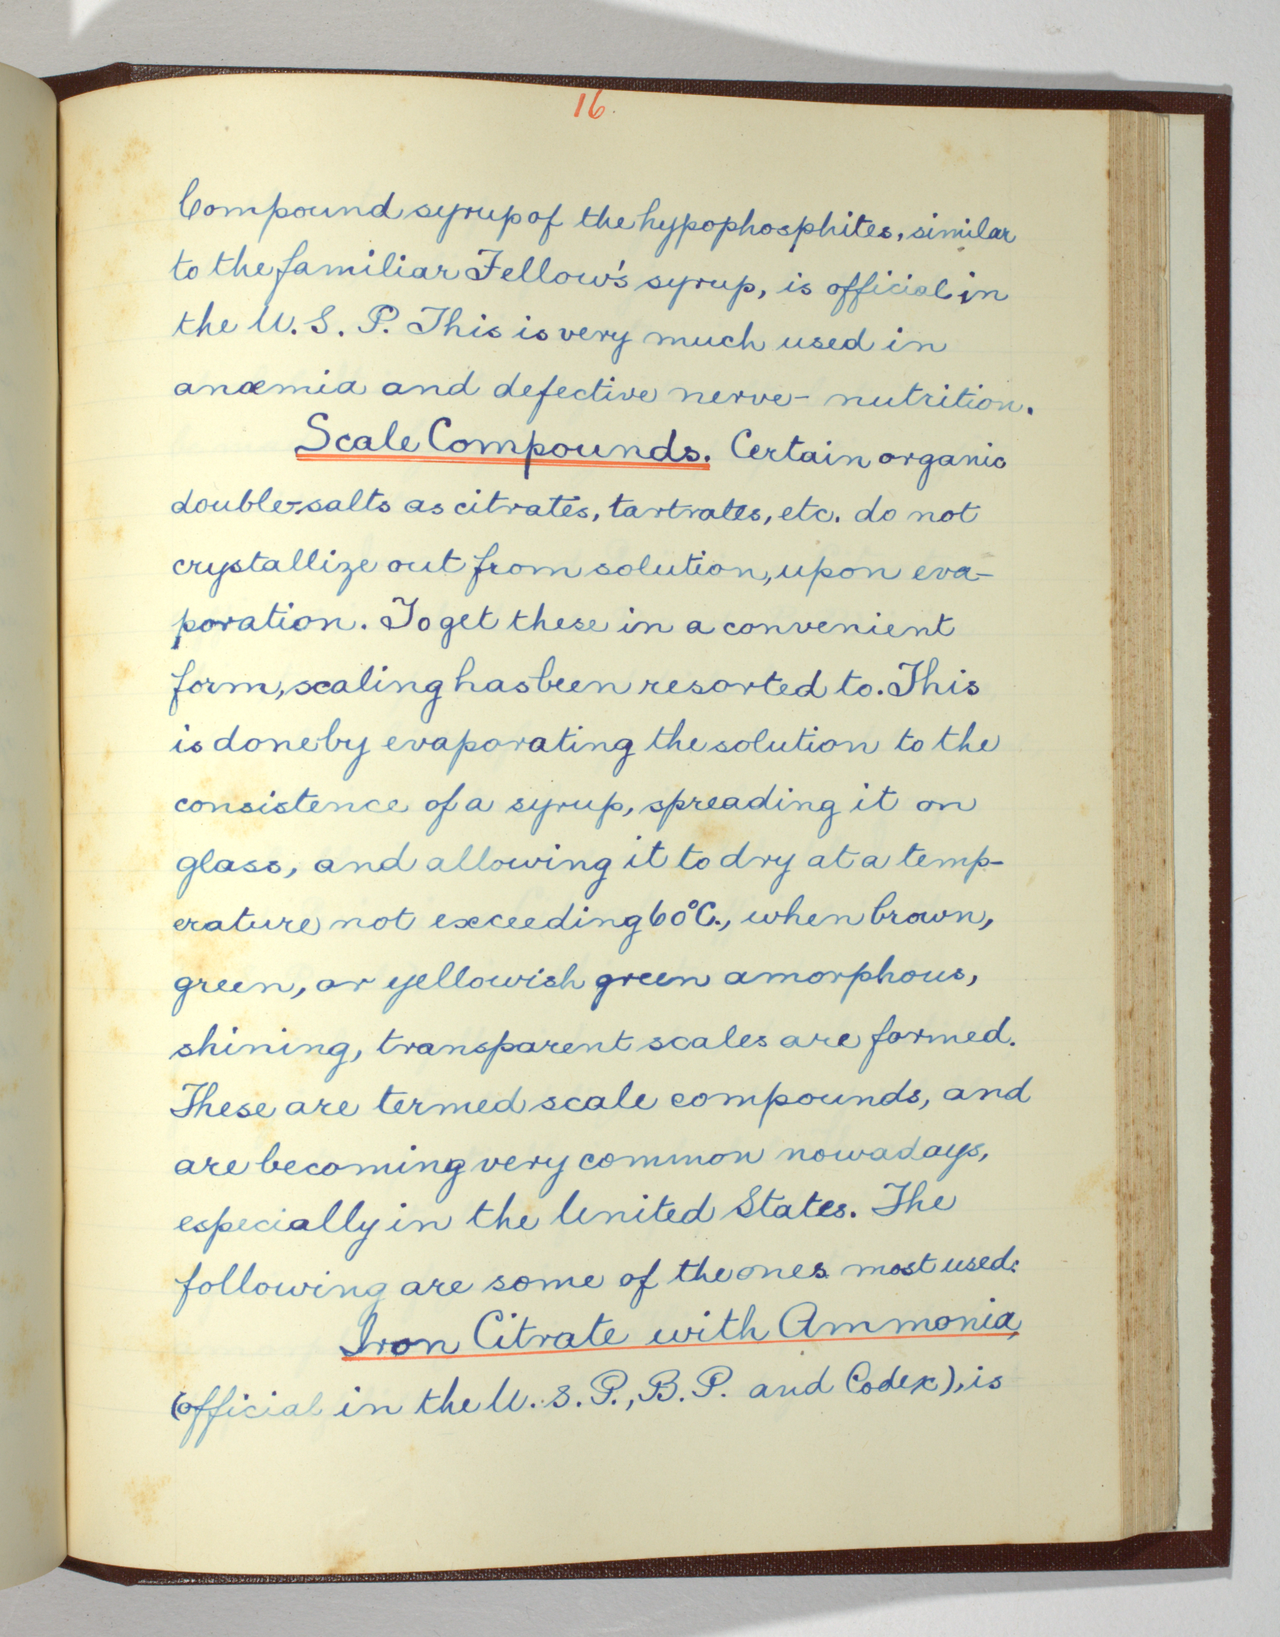 16.
Compound syrup of the hypophosphites, similar
to the familiar Fellow's syrup, is official in
the U. S. P. This is very much used in
anæmia and defective nerve-nutrition.
Scale Compounds. Certain organic
double-salts as citrates, tartrates, etc. do not
crystallize out from solution, upon eva-
poration. To get these in a convenient
form, scaling has been resorted to. This
is done by evaporating the solution to the
consistence of a syrup, spreading it on
glass, and allowing it to dry at a temp-
erature not exceeding 60°C., when brown,
green, or yellowish green amorphous,
shining, transparent scales are formed.
These are termed scale compounds, and
are becoming very common nowadays,
especially in the United States. The
following are some of the ones most used:
Iron Citrate with Ammonia,
(official in the U. S. P., B. P. and Codex), is